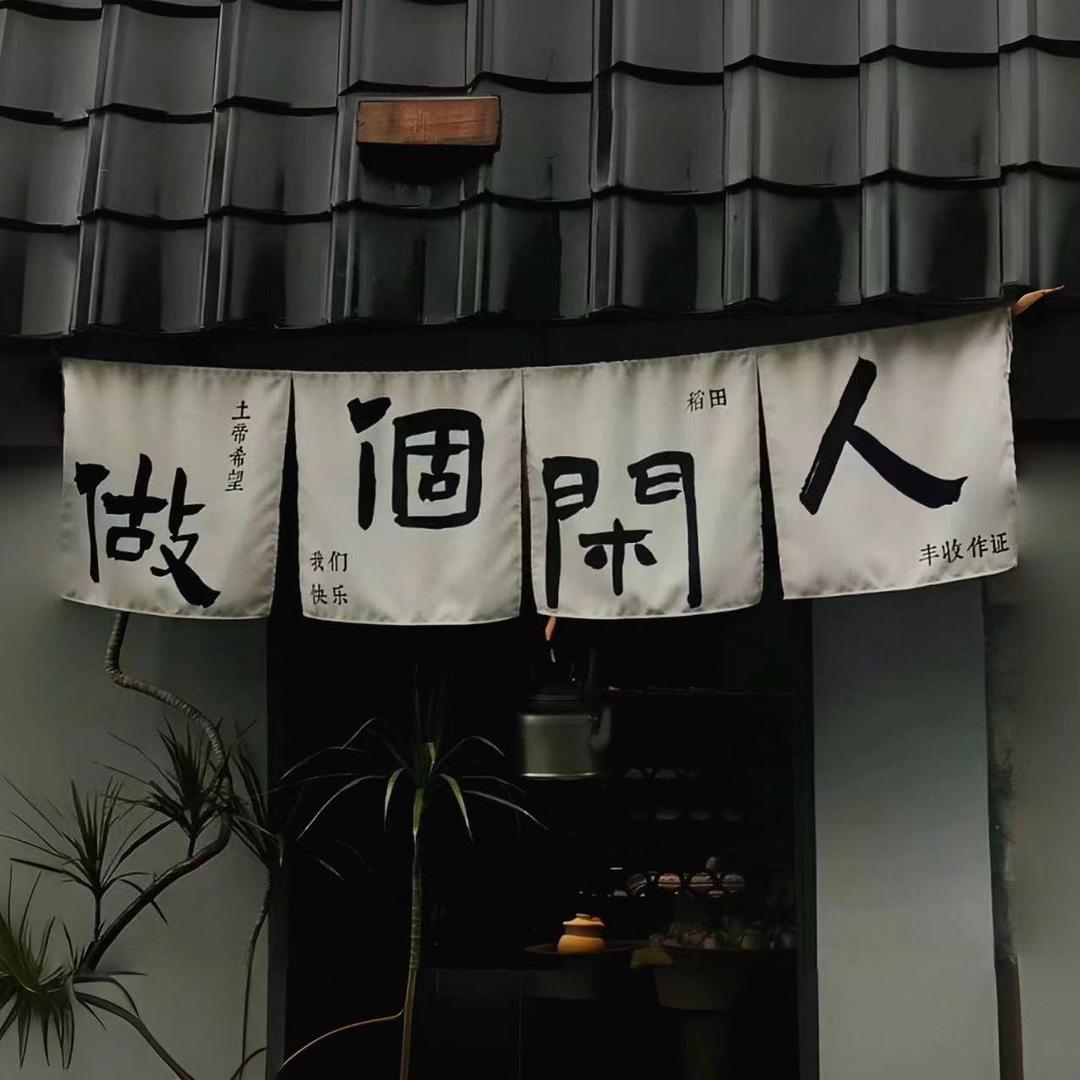 做個閑人
土帝希望
我们
快乐
稻田
丰收作证